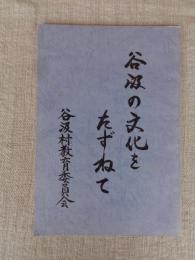 谷汲の文化を
たずねて
谷汲村教育委員会